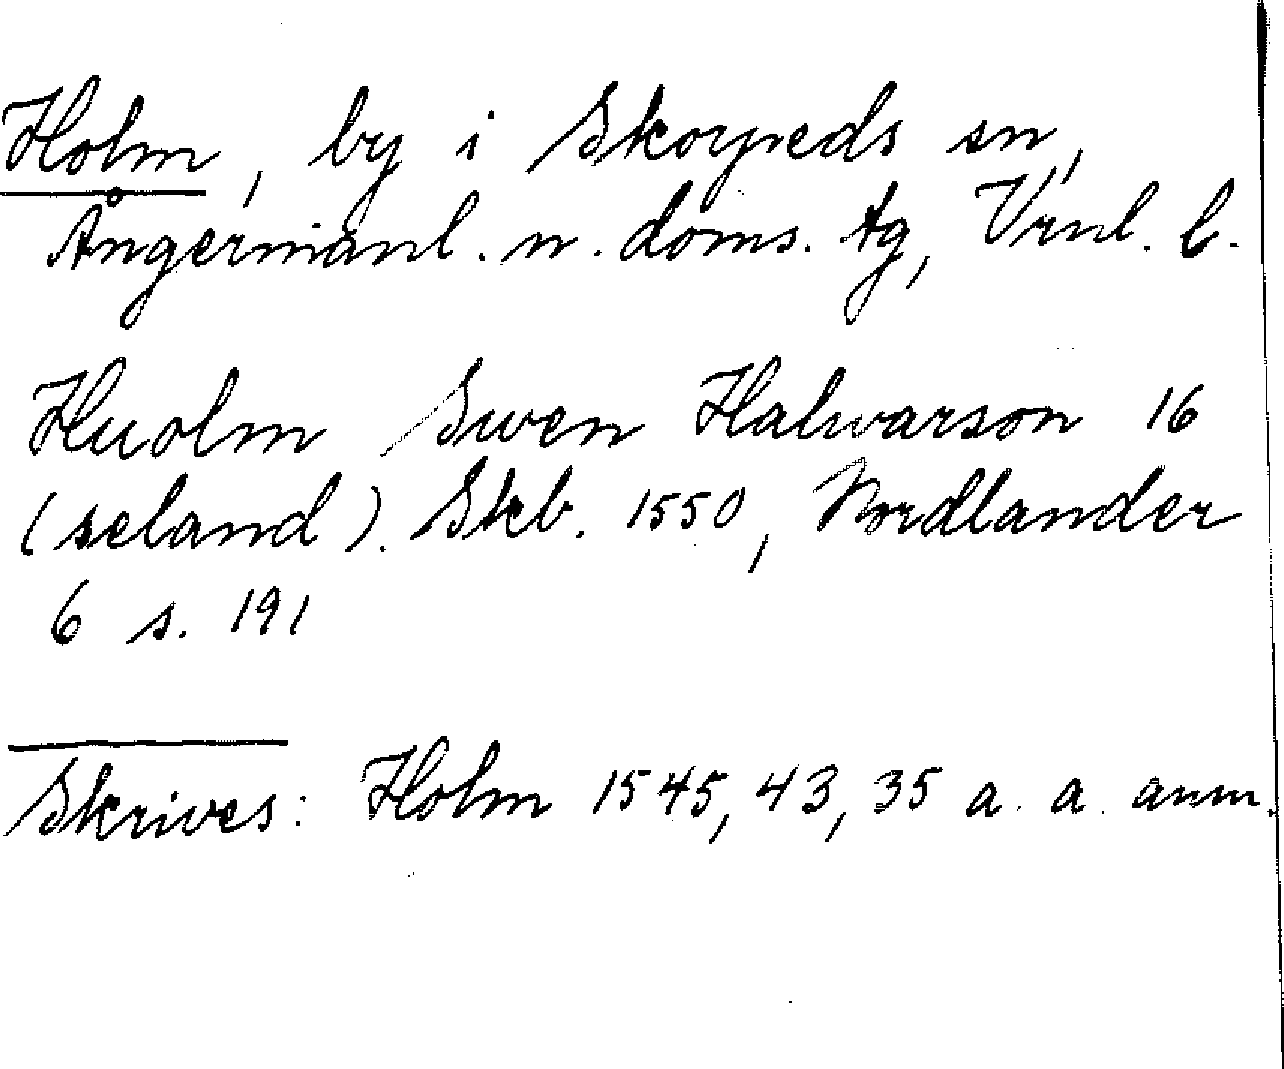 Holm, by i Skorpeds sn,
Ångermanl. n. doms. tg, Vrnl. l.
Huolm Swen Halwarson 16
(seland). Skb. 1550, Nordlander
6 s. 191
Skrives: Holm 1545, 43, 35 a. a. anm.